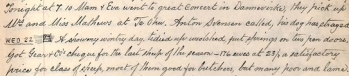 Tonight at 7.10 Mam & Eva went to great concert in Dannevirke, they pick up
Mr and Miss Mathews at Te Ohu. Anton Svenson called, his dog has strayed
WED 22 A showery wintry day, tidied up woolshed, put springs on two pen doors,
Got Gear & Co cheque for the last shup of the season - 176 ewes at 23/, a satisfactory
price for class of sheep, most of them good for butchers, but many poor and lame.